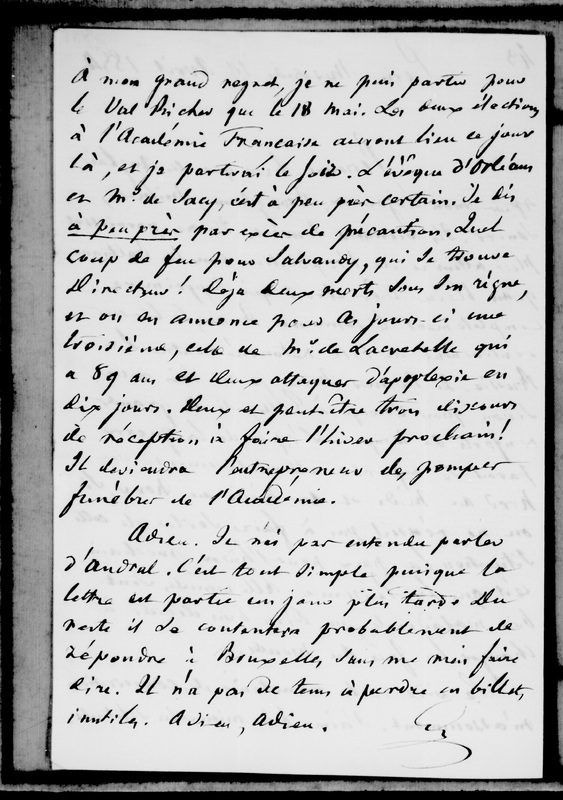 À mon grand regret, je ne puis partir pour
le Val Richer que le 18 mai. Les deux élections
à l'Académie Française auront lieu ce jour
là, et je partirai le soir. L'évêque d'Orléans
et Mr. de Sacy, c'est à peu près certain. Je dis
à peu près par excès de précaution. Quel
coup de feu pour Salvandy, qui se trouve
Directeur ! Déjà deux morts sous son règne,
et on en annonce pour ces jours-ci une
troisième, celle de Mr. de Lacretelle qui
a 89 ans et deux attaques d'apoplexie en
dix jours. Deux et peut-être trois discours
de réception à faire l'hiver prochain !
Il deviendra l'entrepreneur des pompes
funèbres de l'Académie.
Adieu. Je n'ai pas entendu parler
d'Andral. C'est tout simple puisque la
lettre est partie un jour plus tard. Du
reste il se contentera probablement de
répondre à Bruxelles sans me rien faire
dire. Il n'a pas de tems à perdre en billets
inutiles. Adieu, Adieu.